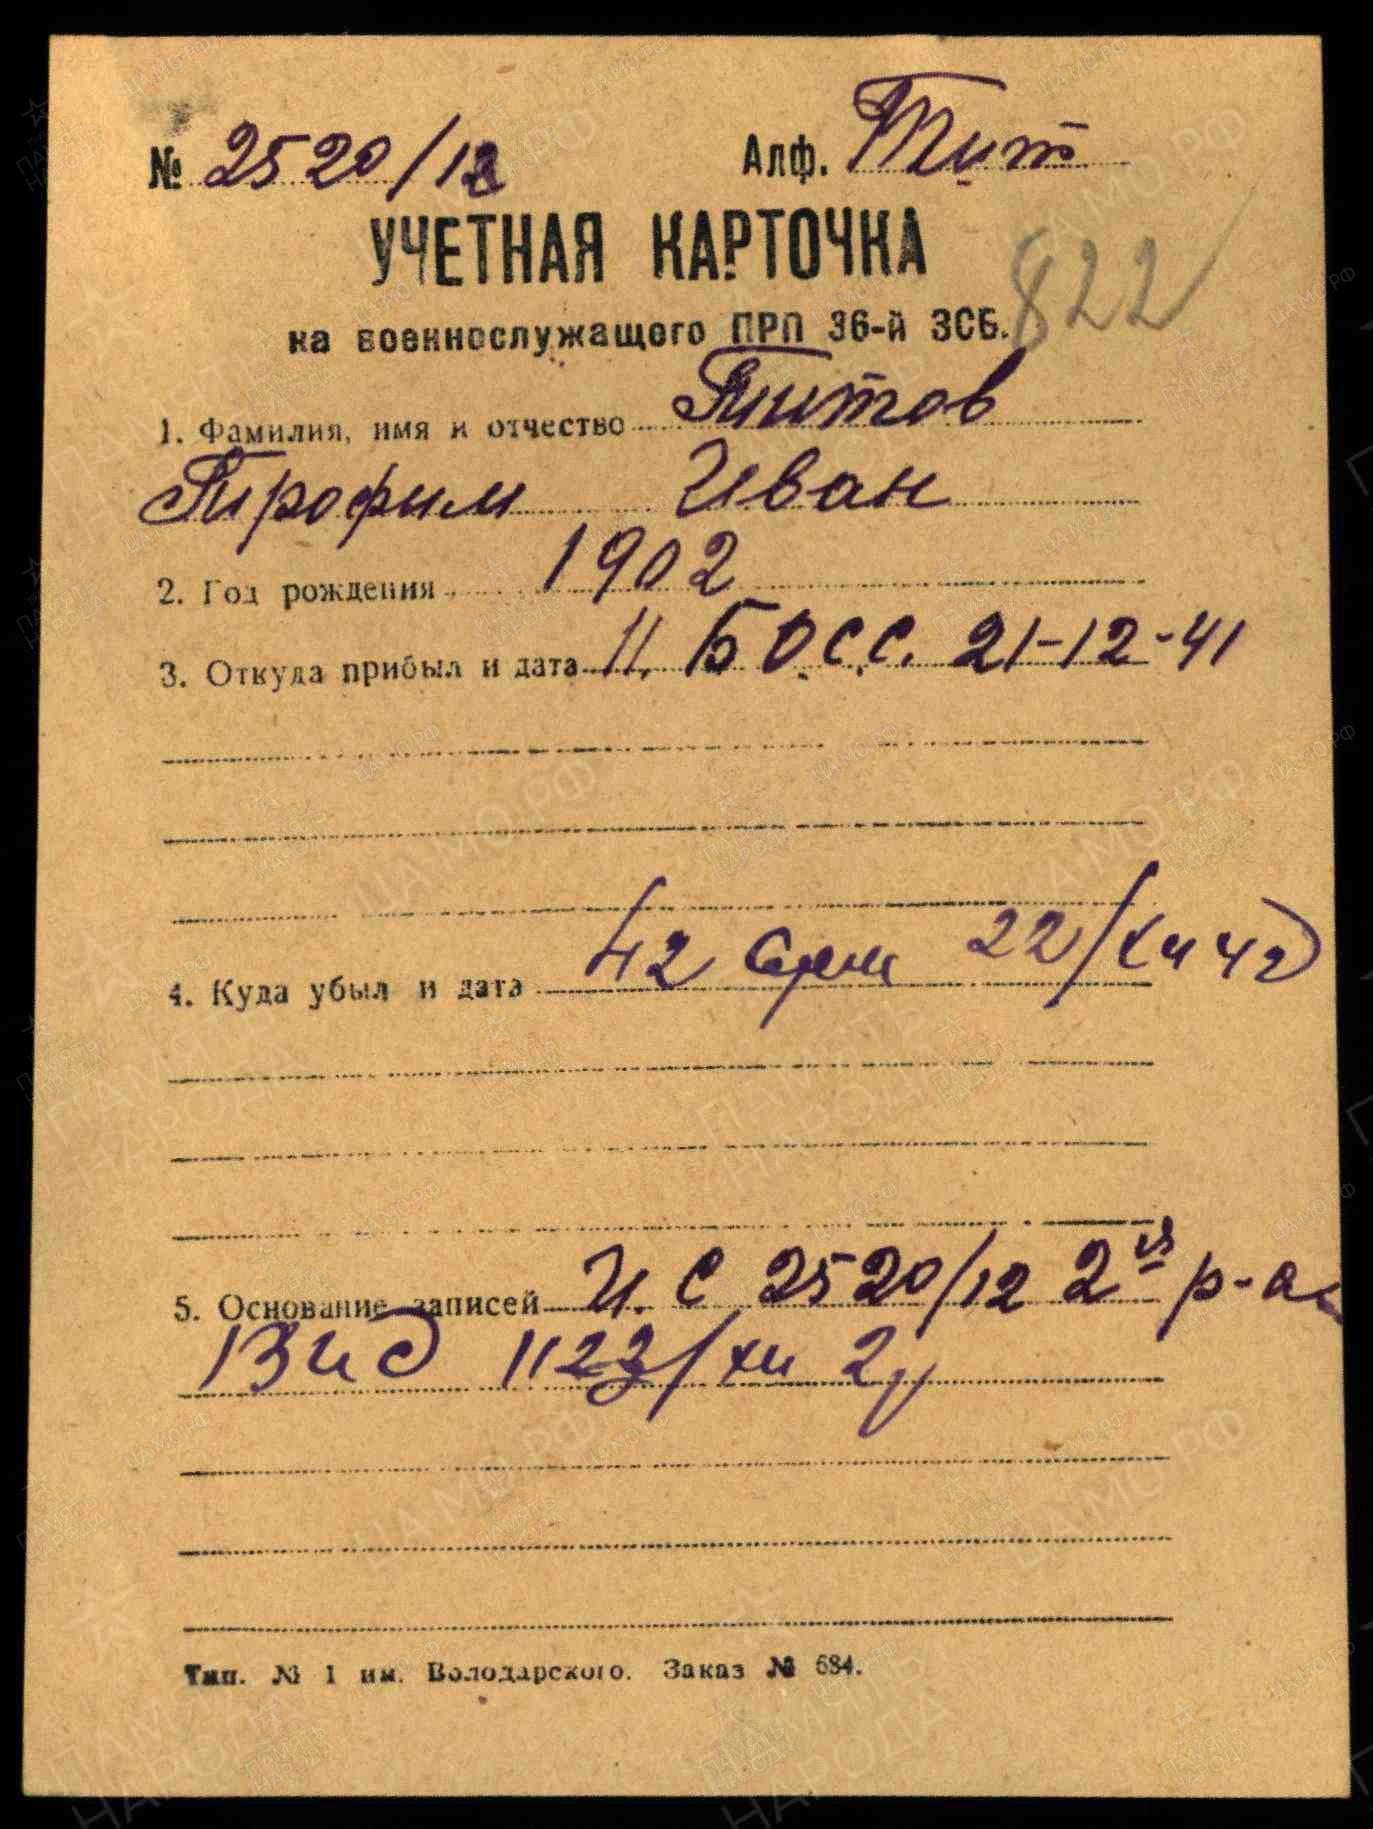 № 2520/12 Алф. Тит
УЧЕТНАЯ КАРТОЧКА
822
на военнослужащего ПРП 36-й ЗСБ.
1. Фамилия, имя и отчество Титов
Трофим Иван
2. Год рождения 1902
3. Откуда прибыл и дата 11 БОСС. 21-12-41
4. Куда убыл и дата 42 22/XII 42
5. Основание записей И.С 2520/12 2
1123/XII
Тип. № 1 им. Володарского. Заказ № 684.
ПАМЯТЬ НАРОДА
ЦАМО.РФ